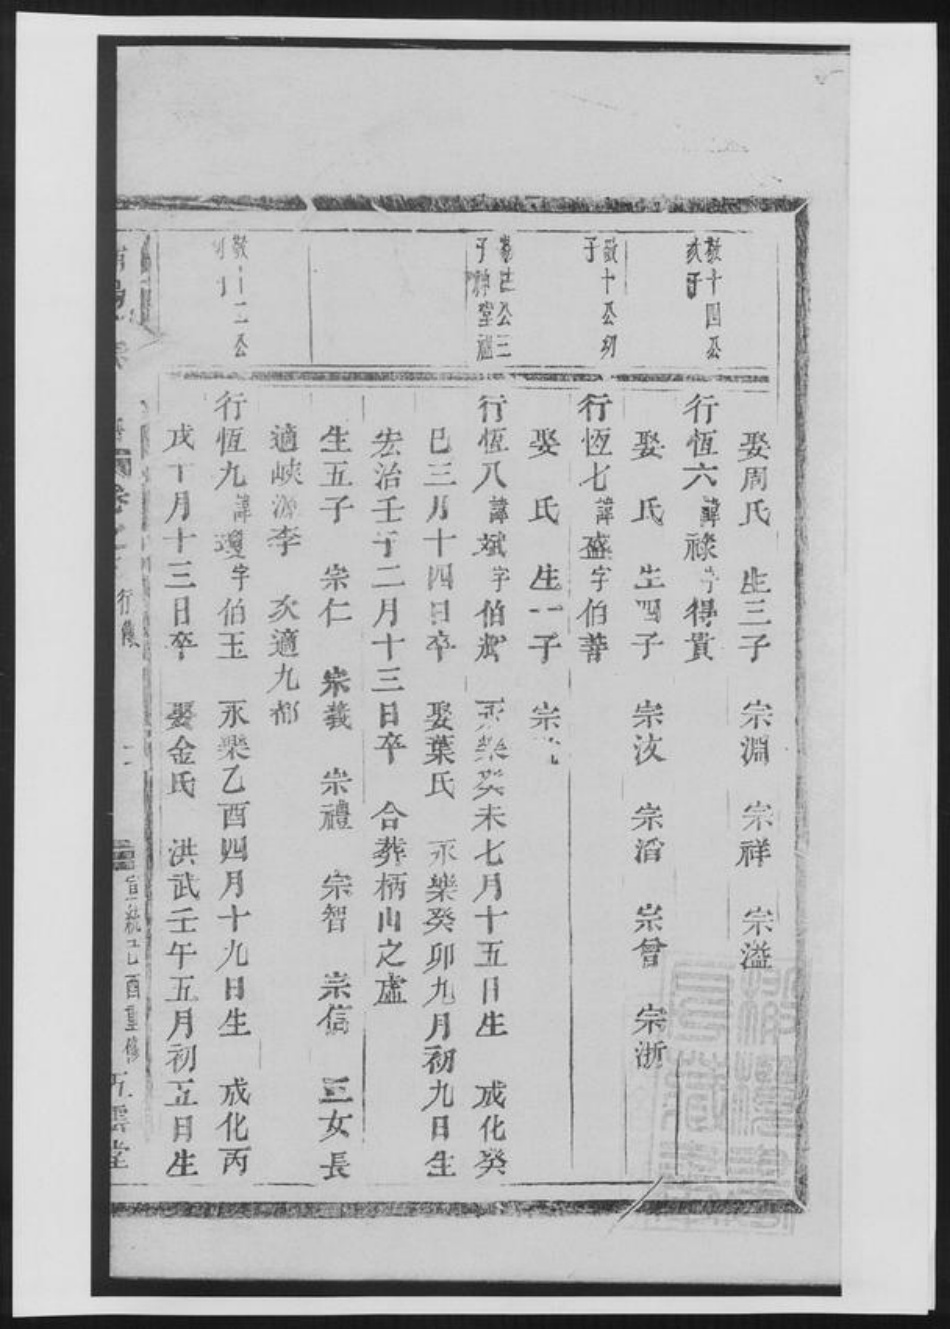 娶周氏 生三子 宗淵 宗祥 宗溢
敬十四公
次子
行恆六諱祿字得貴
娶 氏 生四子 宗汝 宗滔 宗曾 宗浙
敬十公幼
子
行恆七諱盛字伯善
娶 氏 生一子 宗
公三
子神堂祖
行恆八諱斌字伯 永樂癸未七月十五日生 成化癸
巳三月十四日卒 娶葉氏 永樂癸卯九月初九日生
宏治壬子二月十三日卒 合葬柄山之虛
生五子 宗仁 宗義 宗禮 宗智 宗信 三女長
適峽源李 次適九都
敬十二公
子
行恆九諱瓊字伯玉 永樂乙酉四月十九日生 成化丙
戌十月十三日卒 娶金氏 洪武壬午五月初五日生
卷之 行傳
宣統己酉重修 五雲堂